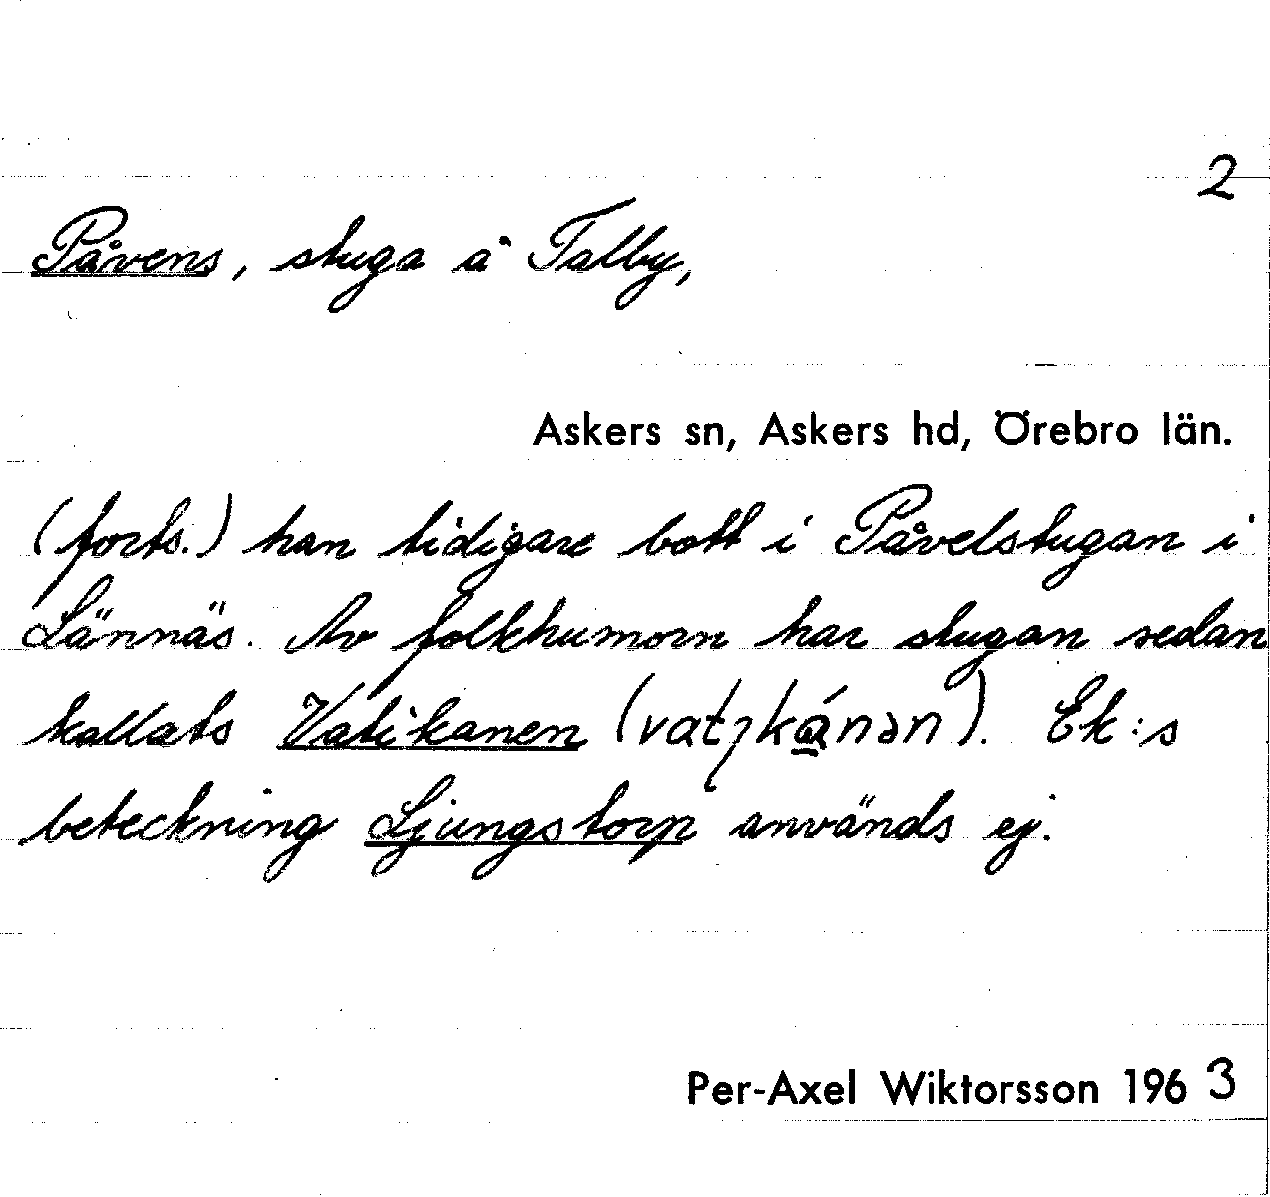 2
Påvens, stuga å Talby,
Askers sn, Askers hd, Örebro län.
(forts.) han tidigare bott i Påvelstugan i
Lännäs. Av folkhumorn har stugan sedan
kallats Vatikanen (vatɩkánən). Ek:s
beteckning Ljungstorp används ej.
Per-Axel Wiktorsson 1963